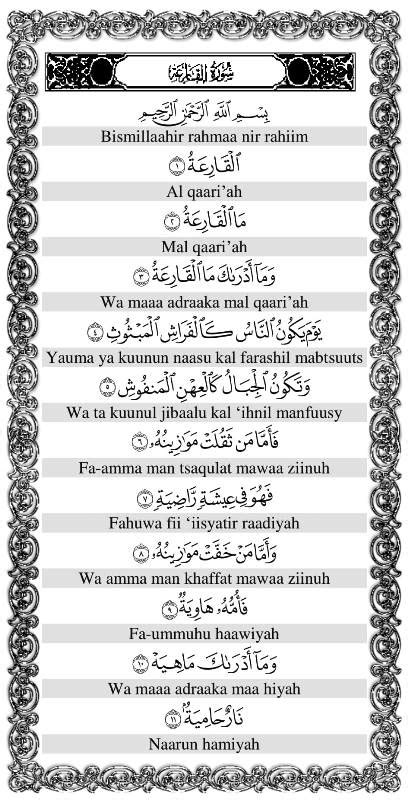 سُورَةُ القَارِعَةِ
بِسْمِ ٱللَّهِ ٱلرَّحْمَٰنِ ٱلرَّحِيمِ
Bismillaahir rahmaa nir rahiim
ٱلْقَارِعَةُ ١
Al qaari’ah
مَا ٱلْقَارِعَةُ ٢
Mal qaari’ah
وَمَآ أَدْرَىٰكَ مَا ٱلْقَارِعَةُ ٣
Wa maaa adraaka mal qaari’ah
يَوْمَ يَكُونُ ٱلنَّاسُ كَٱلْفَرَاشِ ٱلْمَبْثُوثِ ٤
Yauma ya kuunun naasu kal farashil mabtsuuts
وَتَكُونُ ٱلْجِبَالُ كَٱلْعِهْنِ ٱلْمَنفُوشِ ٥
Wa ta kuunul jibaalu kal ‘ihnil manfuusy
فَأَمَّا مَن ثَقُلَتْ مَوَٰزِينُهُۥ ٦
Fa-amma man tsaqulat mawaa ziinuh
فَهُوَ فِى عِيشَةٍ رَّاضِيَةٍ ٧
Fahuwa fii ‘iisyatir raadiyah
وَأَمَّا مَنْ خَفَّتْ مَوَٰزِينُهُۥ ٨
Wa amma man khaffat mawaa ziinuh
فَأُمُّهُۥ هَاوِيَةٌ ٩
Fa-ummuhu haawiyah
وَمَآ أَدْرَىٰكَ مَا هِيَهْ ١٠
Wa maaa adraaka maa hiyah
نَارٌ حَامِيَةٌۢ ١١
Naarun hamiyah